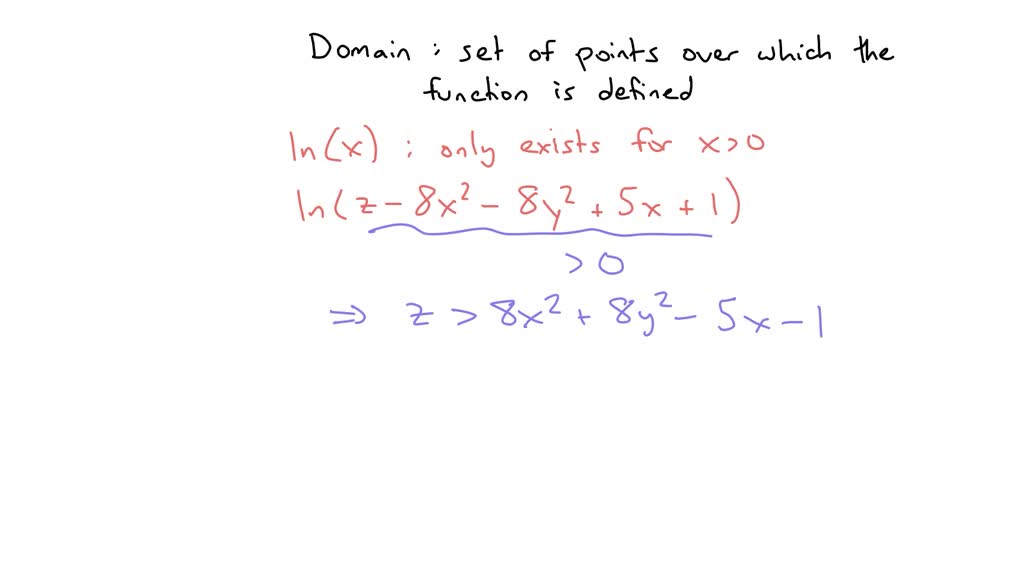 Domain : set of points over which the
function is defined
ln(x) : only exists for x>0
ln(z - 8x² - 8y² + 5x + 1)
> 0
⇒ z > 8x² + 8y² - 5x - 1